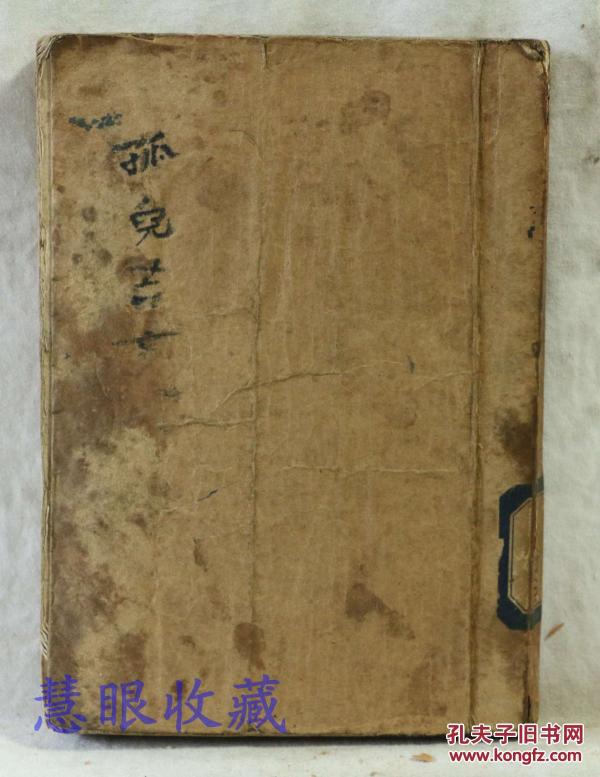 孤児苦女
慧眼收藏
孔夫子旧书网
www.kongfz.com